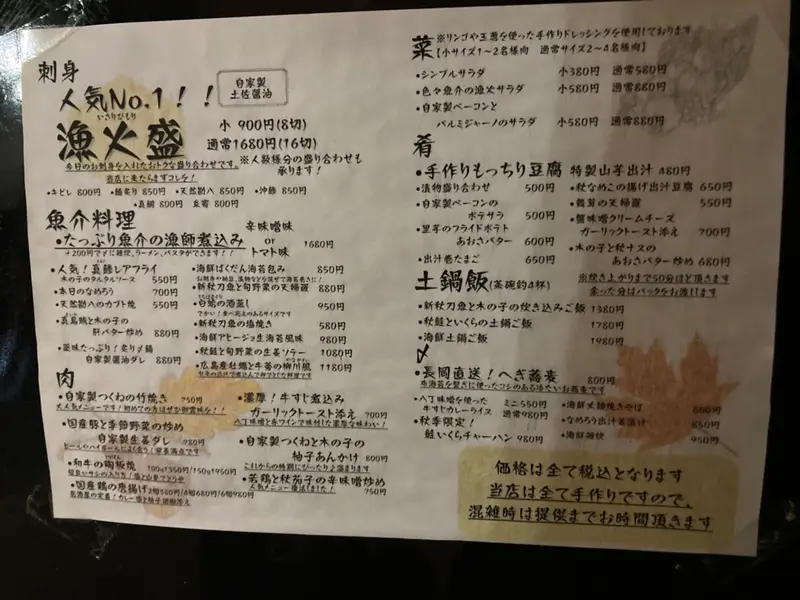 刺身
人気No.1！！
自家製
土佐醤油
いさりびもり
漁火盛
小 900円(8切)
通常1680円(16切)
※人数様分の盛り合わせも
承ります！
本日のお刺身を入れたおトクな盛り合わせです。
当店に来たらまずコレを！
・キビレ 800円 ・鯖炙り 850円 ・天然勘八 850円 ・沖鯵 850円
・真鯛 800円
魚介料理
・たっぷり魚介の漁師煮込み
辛味噌味
or
トマト味
1680円
+200円で〆に雑炊、ラーメン、パスタができます！！
・人気！真鯵レアフライ
木の子のタルタルソース 550円
・本日のなめろう 700円
・天然勘八のカブト焼 550円
・真烏賊と木の子の
肝バター炒め 880円
・薬味たっぷり！炙り〆鯖
自家製醤油ダレ 880円
・海鮮ばくだん海苔包み 850円
・新秋刀魚と旬野菜の天婦羅 880円
・白蛤の酒蒸し 950円
でかい！食べ応えのあるサイズです
・新秋刀魚の塩焼き 580円
・海鮮アヒージョ生海苔風味 980円
・秋鮭と旬野菜の生姜ソテー 1080円
・広島産牡蠣と牛蒡の柳川風 1180円
肉
・自家製つくわの竹焼き 750円
大人気メニューです！初めての方はぜひ御賞味を！！
・国産豚と季節野菜の炒め
自家製生姜ダレ 980円
・和牛の陶板焼 100g1350円/150g1950円
・国産鶏の唐揚げ 2個380円/4個680円/6個980円
・濃厚！牛すじ煮込み
ガーリックトースト添え 700円
八丁味噌と赤ワインで味付した濃厚な味わい！
・自家製つくわと木の子の
柚子あんかけ 800円
これからの時期にぴったり♪温まります
・若鶏と秋茄子の辛味噌炒め
人気メニュー復活しました！ 750円
菜
※リンゴや玉葱を使った手作りドレッシングを使用しております
【小サイズ1～2名様向 通常サイズ2～4名様向】
・シンプルサラダ 小380円 通常580円
・色々魚介の漁火サラダ 小580円 通常880円
・自家製ベーコンと
パルミジャーノのサラダ 小580円 通常880円
肴
・手作りもっちり豆腐 特製山芋出汁 480円
・漬物盛り合わせ 500円
・自家製ベーコンの
ポテサラ 500円
・里芋のフライドポト
あおさバター 600円
・出汁巻たまご 650円
・秋なめこの揚げ出汁豆腐 650円
・舞茸の天婦羅 550円
・蟹味噌クリームチーズ
ガーリックトースト添え 700円
・木の子と秋ナスの
あおさバター炒め 680円
土鍋飯(茶碗約4杯)
※炊き上がりまで50分ほど頂きます
余った分はパックをお渡しします
・新秋刀魚と木の子の炊き込みご飯 1380円
・秋鮭といくらの土鍋ご飯 1780円
・海鮮土鍋ご飯 1980円
〆
・長岡直送！へぎ蕎麦 800円
布海苔を繋ぎに使ったコシのある冷たいお蕎麦です
・八丁味噌を使った
牛すじカレーライス
ミニ550円
通常980円
・秋季限定！
鮭いくらチャーハン 980円
・なめろう出汁茶漬け 850円
・海鮮雑炊 950円
価格は全て税込となります
当店は全て手作りですので、
混雑時は提供までお時間頂きます